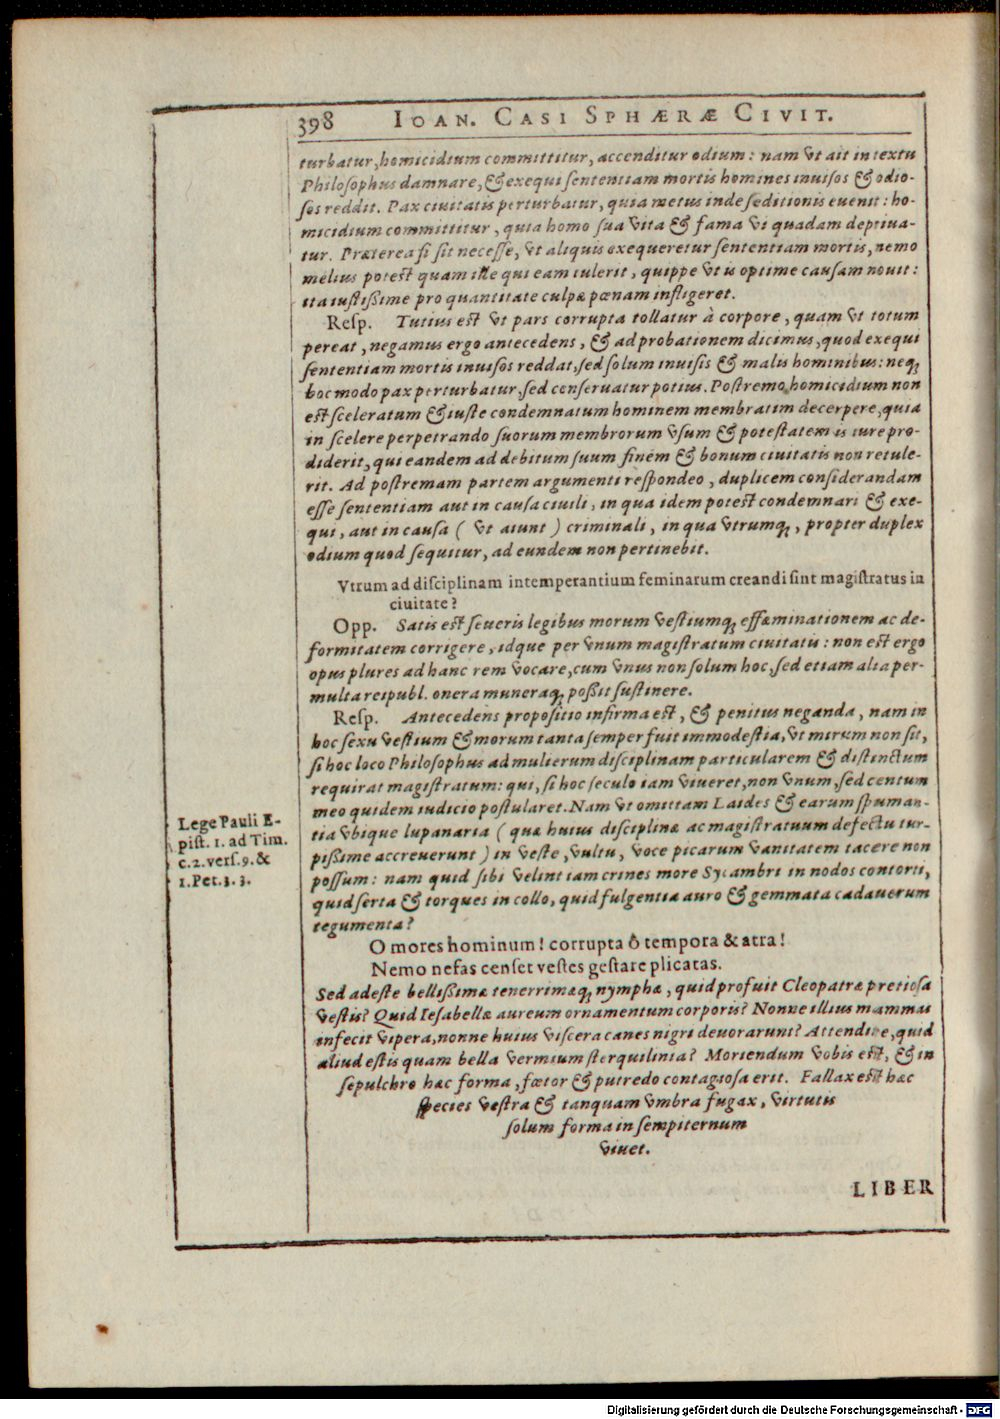 398 IOAN. CASI SPHÆRÆ CIVIT.
turbatur, homicidium committitur, accenditur odium: nam vt ait in textu
Philosophus damnare, & exequi sententiam mortis homines inuisos & odio-
sos reddit. Pax ciuitatis perturbatur, quia metus inde seditionis euenit: ho-
micidium committitur, quia homo sua vita & fama vi quadam depriua-
tur. Præterea si sit necesse, vt aliquis exequeretur sententiam mortis, nemo
melius potest quam ille qui eam tulerit, quippe vt is optime causam nouit:
ita iustißime pro quantitate culpæ pœnam infligeret.
Resp. Tutius est vt pars corrupta tollatur à corpore, quam vt totum
pereat, negamus ergo antecedens, & ad probationem dicimus, quod exequi
sententiam mortis inuisos reddat, sed solum inuisis & malis hominibus: neq;
hoc modo pax perturbatur, sed conseruatur potius. Postremo homicidium non
est sceleratum & iuste condemnatum hominem membratim decerpere, quia
in scelere perpetrando suorum membrorum vsum & potestatem is iure pro-
diderit, qui eandem ad debitum suum finem & bonum ciuitatis non retule-
rit. Ad postremam partem argumenti respondeo, duplicem considerandam
esse sententiam aut in causa ciuili, in qua idem potest condemnari & exe-
qui, aut in causa ( vt aiunt ) criminali, in qua vtrumq;, propter duplex
odium quod sequitur, ad eundem non pertinebit.
Vtrum ad disciplinam intemperantium feminarum creandi sint magistratus in
ciuitate?
Opp. Satis est seueris legibus morum vestiumq; effæminationem ac de-
formitatem corrigere, idque per vnum magistratum ciuitatis: non est ergo
opus plures ad hanc rem vocare, cum vnus non solum hoc, sed etiam alia per-
multa reipubl. onera muneraq; poßit sustinere.
Resp. Antecedens propositio infirma est, & penitus neganda, nam in
hoc sexu vestium & morum tanta semper fuit immodestia, vt mirum non sit,
si hoc loco Philosophus ad mulierum disciplinam particularem & distinctum
requirat magistratum: qui, si hoc seculo iam viueret, non vnum, sed centum
meo quidem iudicio postularet. Nam vt omittam Laides & earum spuman-
tia vbique lupanaria ( quæ huius disciplinæ ac magistratuum defectu tur-
pißime accreuerunt ) in veste, vultu, voce picarum vanitatem tacere non
possum: nam quid sibi velint iam crines more Sycambri in nodos contorti,
quid serta & torques in collo, quid fulgentia auro & gemmata cadauerum
tegumenta?
Lege Pauli E-
pist. 1. ad Tim.
c. 2. vers. 9. &
1. Pet. 3. 3.
O mores hominum! corrupta ô tempora & atra!
Nemo nefas censet vestes gestare plicatas.
Sed adeste bellißimæ tenerrimæq; nymphæ, quid profuit Cleopatræ pretiosa
vestis? Quid Iesabellæ aureum ornamentum corporis? Nonne illius mammas
infecit vipera, nonne huius viscera canes nigri deuorarunt? Attendite, quid
aliud estis quam bella vermium sterquilinia? Moriendum vobis est, & in
sepulchro hæc forma, fœtor & putredo contagiosa erit. Fallax est hæc
species vestra & tanquam vmbra fugax, virtutis
solum forma in sempiternum
viuet.
LIBER
Digitalisierung gefördert durch die Deutsche Forschungsgemeinschaft - DFG